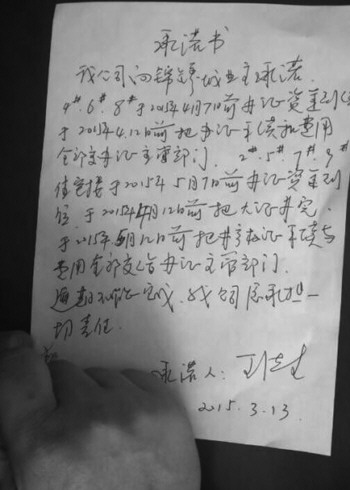 承诺书
我公司向锦绣城业主承诺.
4#.6#.8#于2015年4月7日前办证资金到位
于2015年4.12日前把办证手续和费用
全部交办证主管部门. 2#.5#7#.9#
于2015年5月7日前办证资金到
位. 于2015年4月12日前把大证办完.
于2015年5月12日前把办证手续与
费用全部交给办证主管部门.
逾期不能完成, 我公司愿承担一
切责任.
承诺人:
2015.3.13